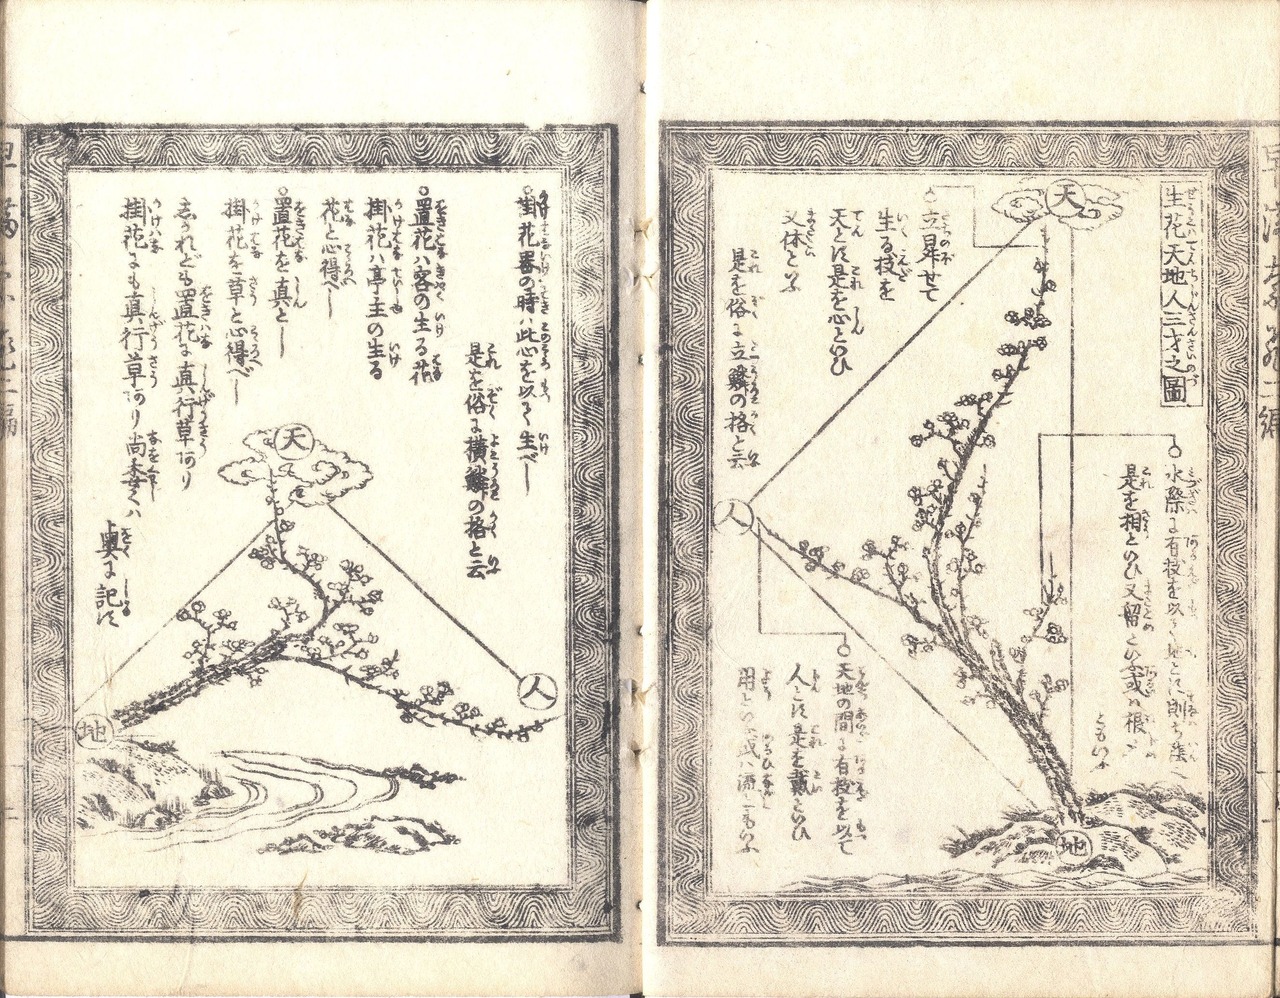 生花天地人三才之圖
天
水際に有枝を以て地とす則ち
是を相といひ又留といひ或ハ根〆
ともいふ
立昇せて
生る枝を
天とす是を心といひ
又体といふ
是を俗に立鱗の格と云
人
天地の間に有枝を以て
人とす是を
用といふ或ハ
地
掛花器の時ハ此心を以て生べし
是を俗に横鱗の格と云
置花ハ客の生る花
掛花ハ亭主の生る
花と心得べし
置花を真とし
掛花を草と心得べし
志かれども置花に真行草あり
掛花にも真行草あり尚委くハ
奥に記す
天
人
地